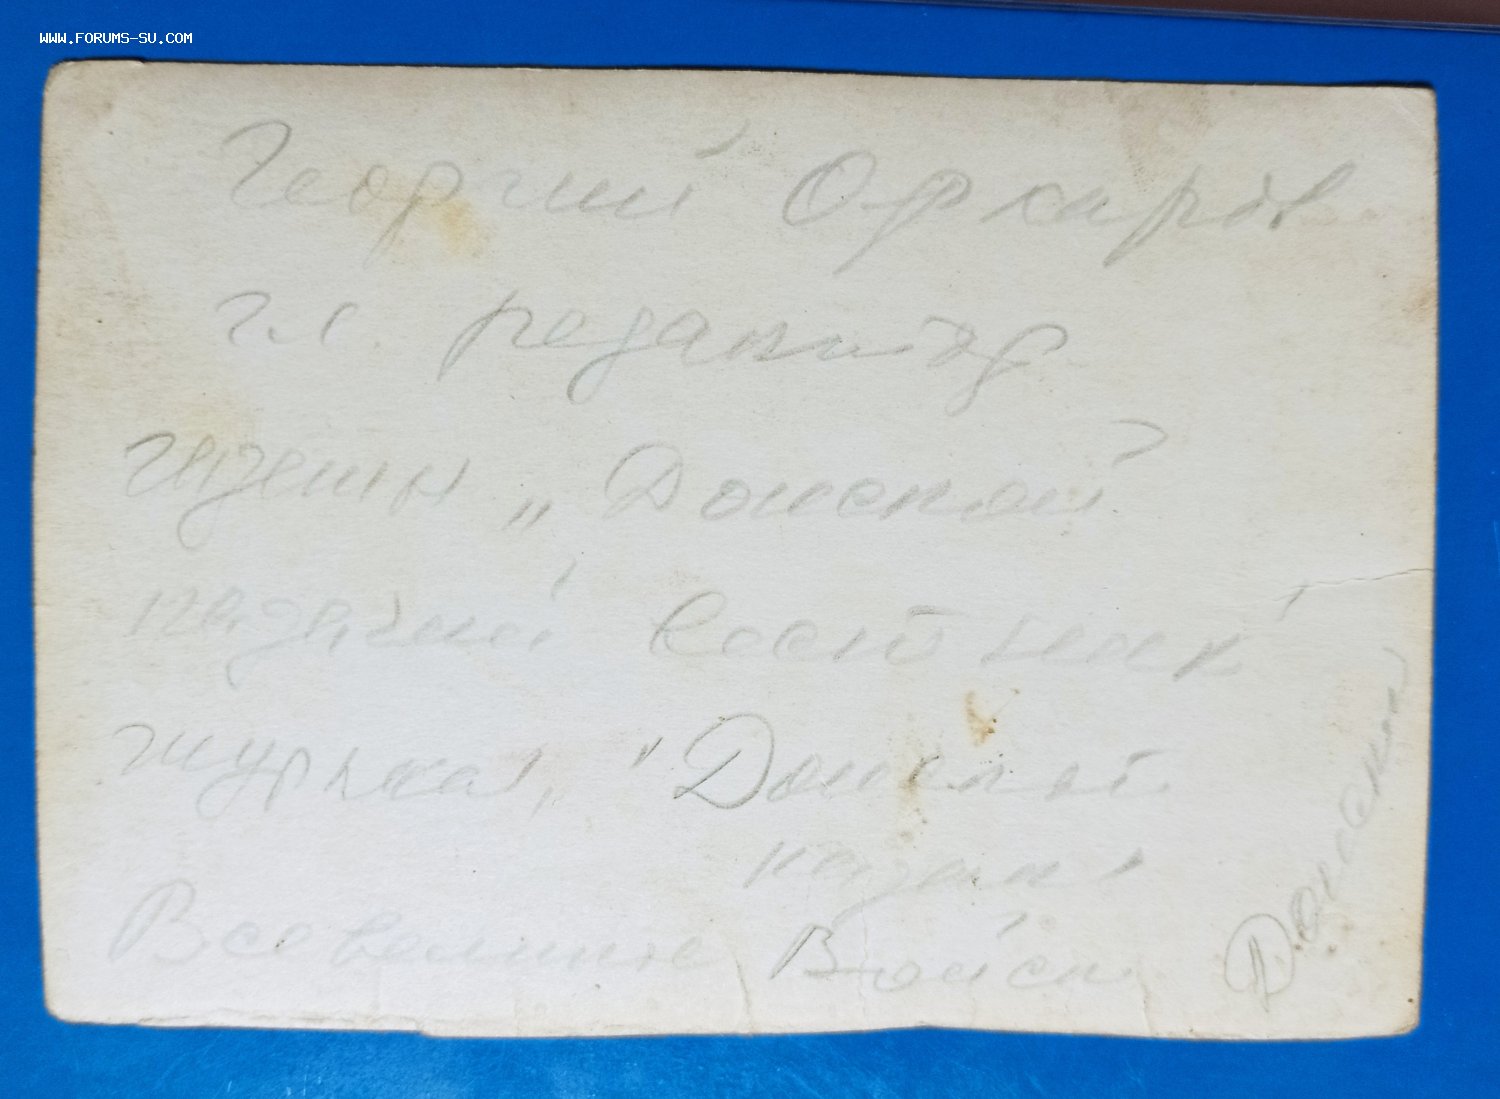 WWW.FORUMS-SU.COM
Георгий
гл. редактор
газеты „Донской
казачий вестник"
журнал, "Донская
Всевеликое Войско
Донское